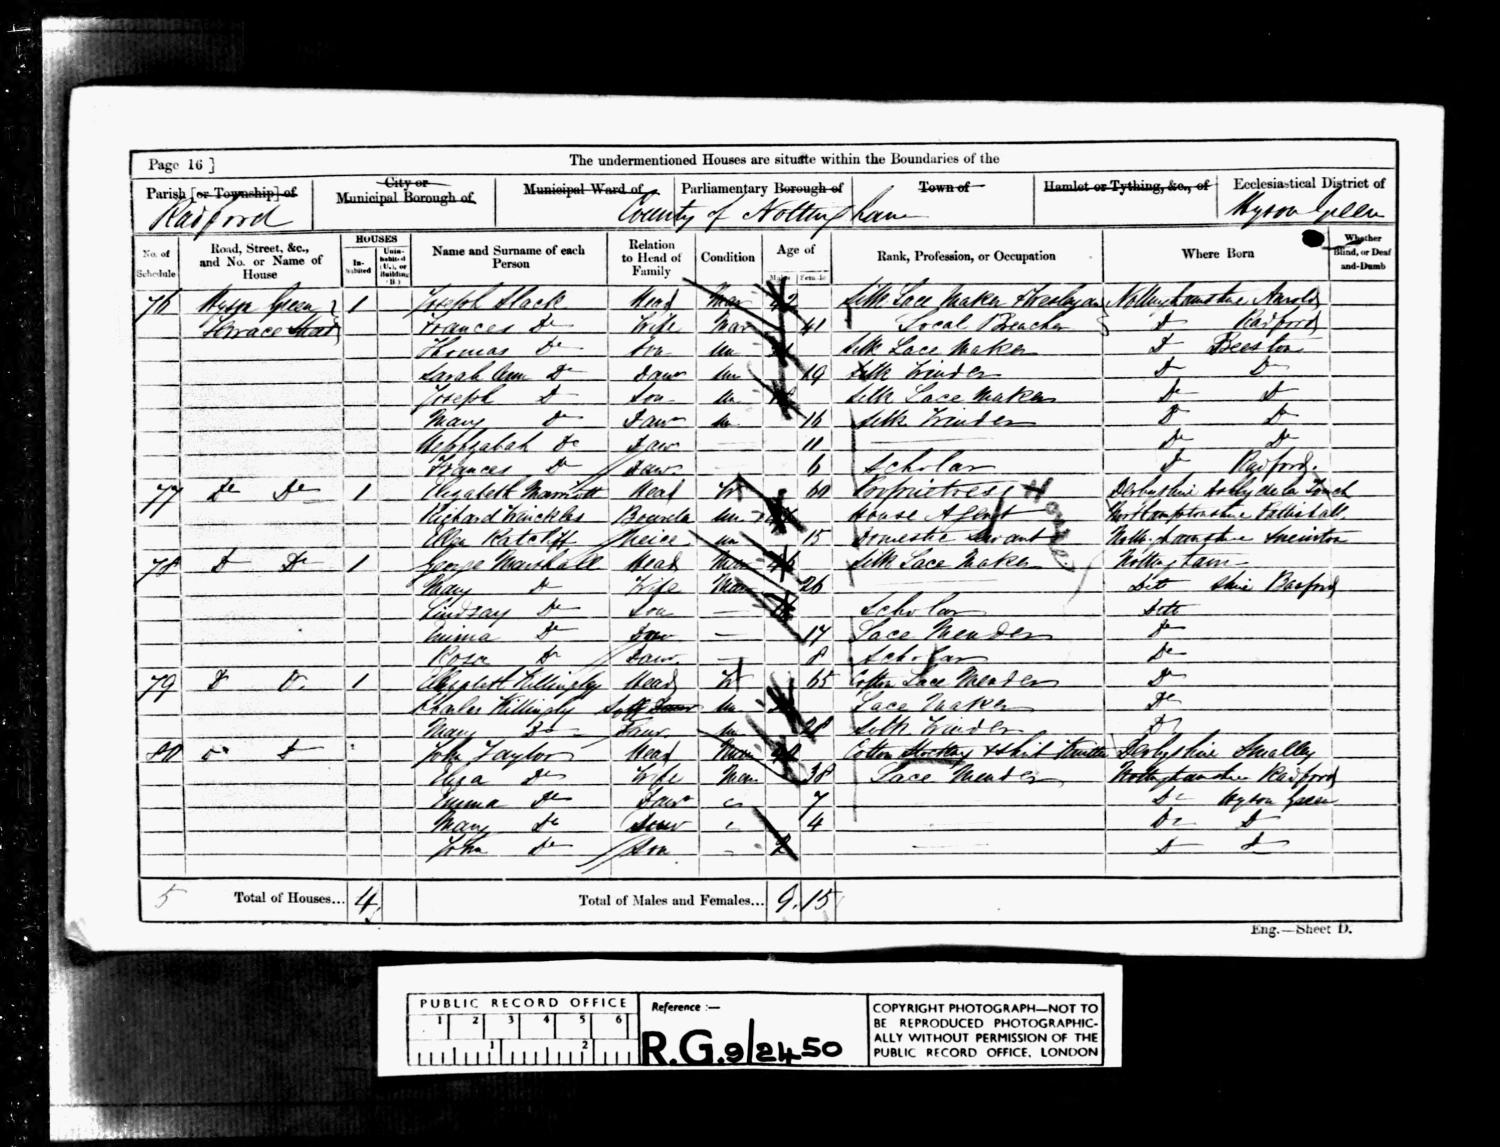 Page 16 ]
The undermentioned Houses are situate within the Boundaries of the
Parish [or Township] of
City or
Municipal Borough of
Municipal Ward of
Parliamentary Borough of
Town of
Hamlet or Tything, &c., of
Ecclesiastical District of
Radford
County of Nottingham
Hyson Green
No. of Schedule
Road, Street, &c., and No. or Name of House
HOUSES
Inhabited
Uninhabited (U.), or Building (B.)
Name and Surname of each Person
Relation to Head of Family
Condition
Age of
Males
Females
Rank, Profession, or Occupation
Where Born
Whether Blind, or Deaf-and-Dumb
76 Hyson Green 1 Joseph Slack Head Mar 42 Silk Lace Maker & Wesleyan Nottinghamshire Arnold
Terrace Street Frances Do Wife Mar 41 Local Preacher Do Radford
Thomas Do Son Un Silk Lace Maker Do Beeston
Sarah Ann Do Daur Un 19 Silk Winder Do Do
Joseph Do Son Un Silk Lace Maker Do Do
Mary Do Daur Un 16 Silk Winder Do Do
Hephzabah Do Daur 11 Do Do
Frances Do Daur 6 Scholar Do Radford
77 Do Do 1 Elizabeth Marriott Head W 60 Proprietress House Derbyshire
Richard Boarder Un House Agent Northamptonshire
Ellen Ratcliff Neice Un 15 Domestic Servant Nottinghamshire Sneinton
78 Do Do 1 George Marshall Head Mar 46 Silk Lace Maker Nottingham
Mary Do Wife Mar 26 Ditto shire Basford
Lindsay Do Son — Scholar Ditto
Emma Do Daur — 17 Lace Mender Do
Rosa Do Daur — 8 Scholar Do
79 Do Do 1 Elizabeth Killingly Head W 65 Cotton Lace Mender Do
Charles Killingly Son Un Lace Maker Do
Mary Do Daur Un 28 Silk Winder Do
80 Do Do John Taylor Head Mar 40 Cotton Stocking & Shirt Derbyshire Smalley
Eliza Do Wife Mar 38 Lace Mender Nottinghamshire Radford
Emma Do Daur 7 Do Hyson Green
Mary Do Daur 4 Do Do
John Do Son 2 Do Do
5 Total of Houses... 4 Total of Males and Females... 9 15
Eng.—Sheet D.
PUBLIC RECORD OFFICE
1 2 3 4 5 6
1 2
Reference :—
R.G. 9/2450
COPYRIGHT PHOTOGRAPH—NOT TO
BE REPRODUCED PHOTOGRAPHIC-
ALLY WITHOUT PERMISSION OF THE
PUBLIC RECORD OFFICE, LONDON